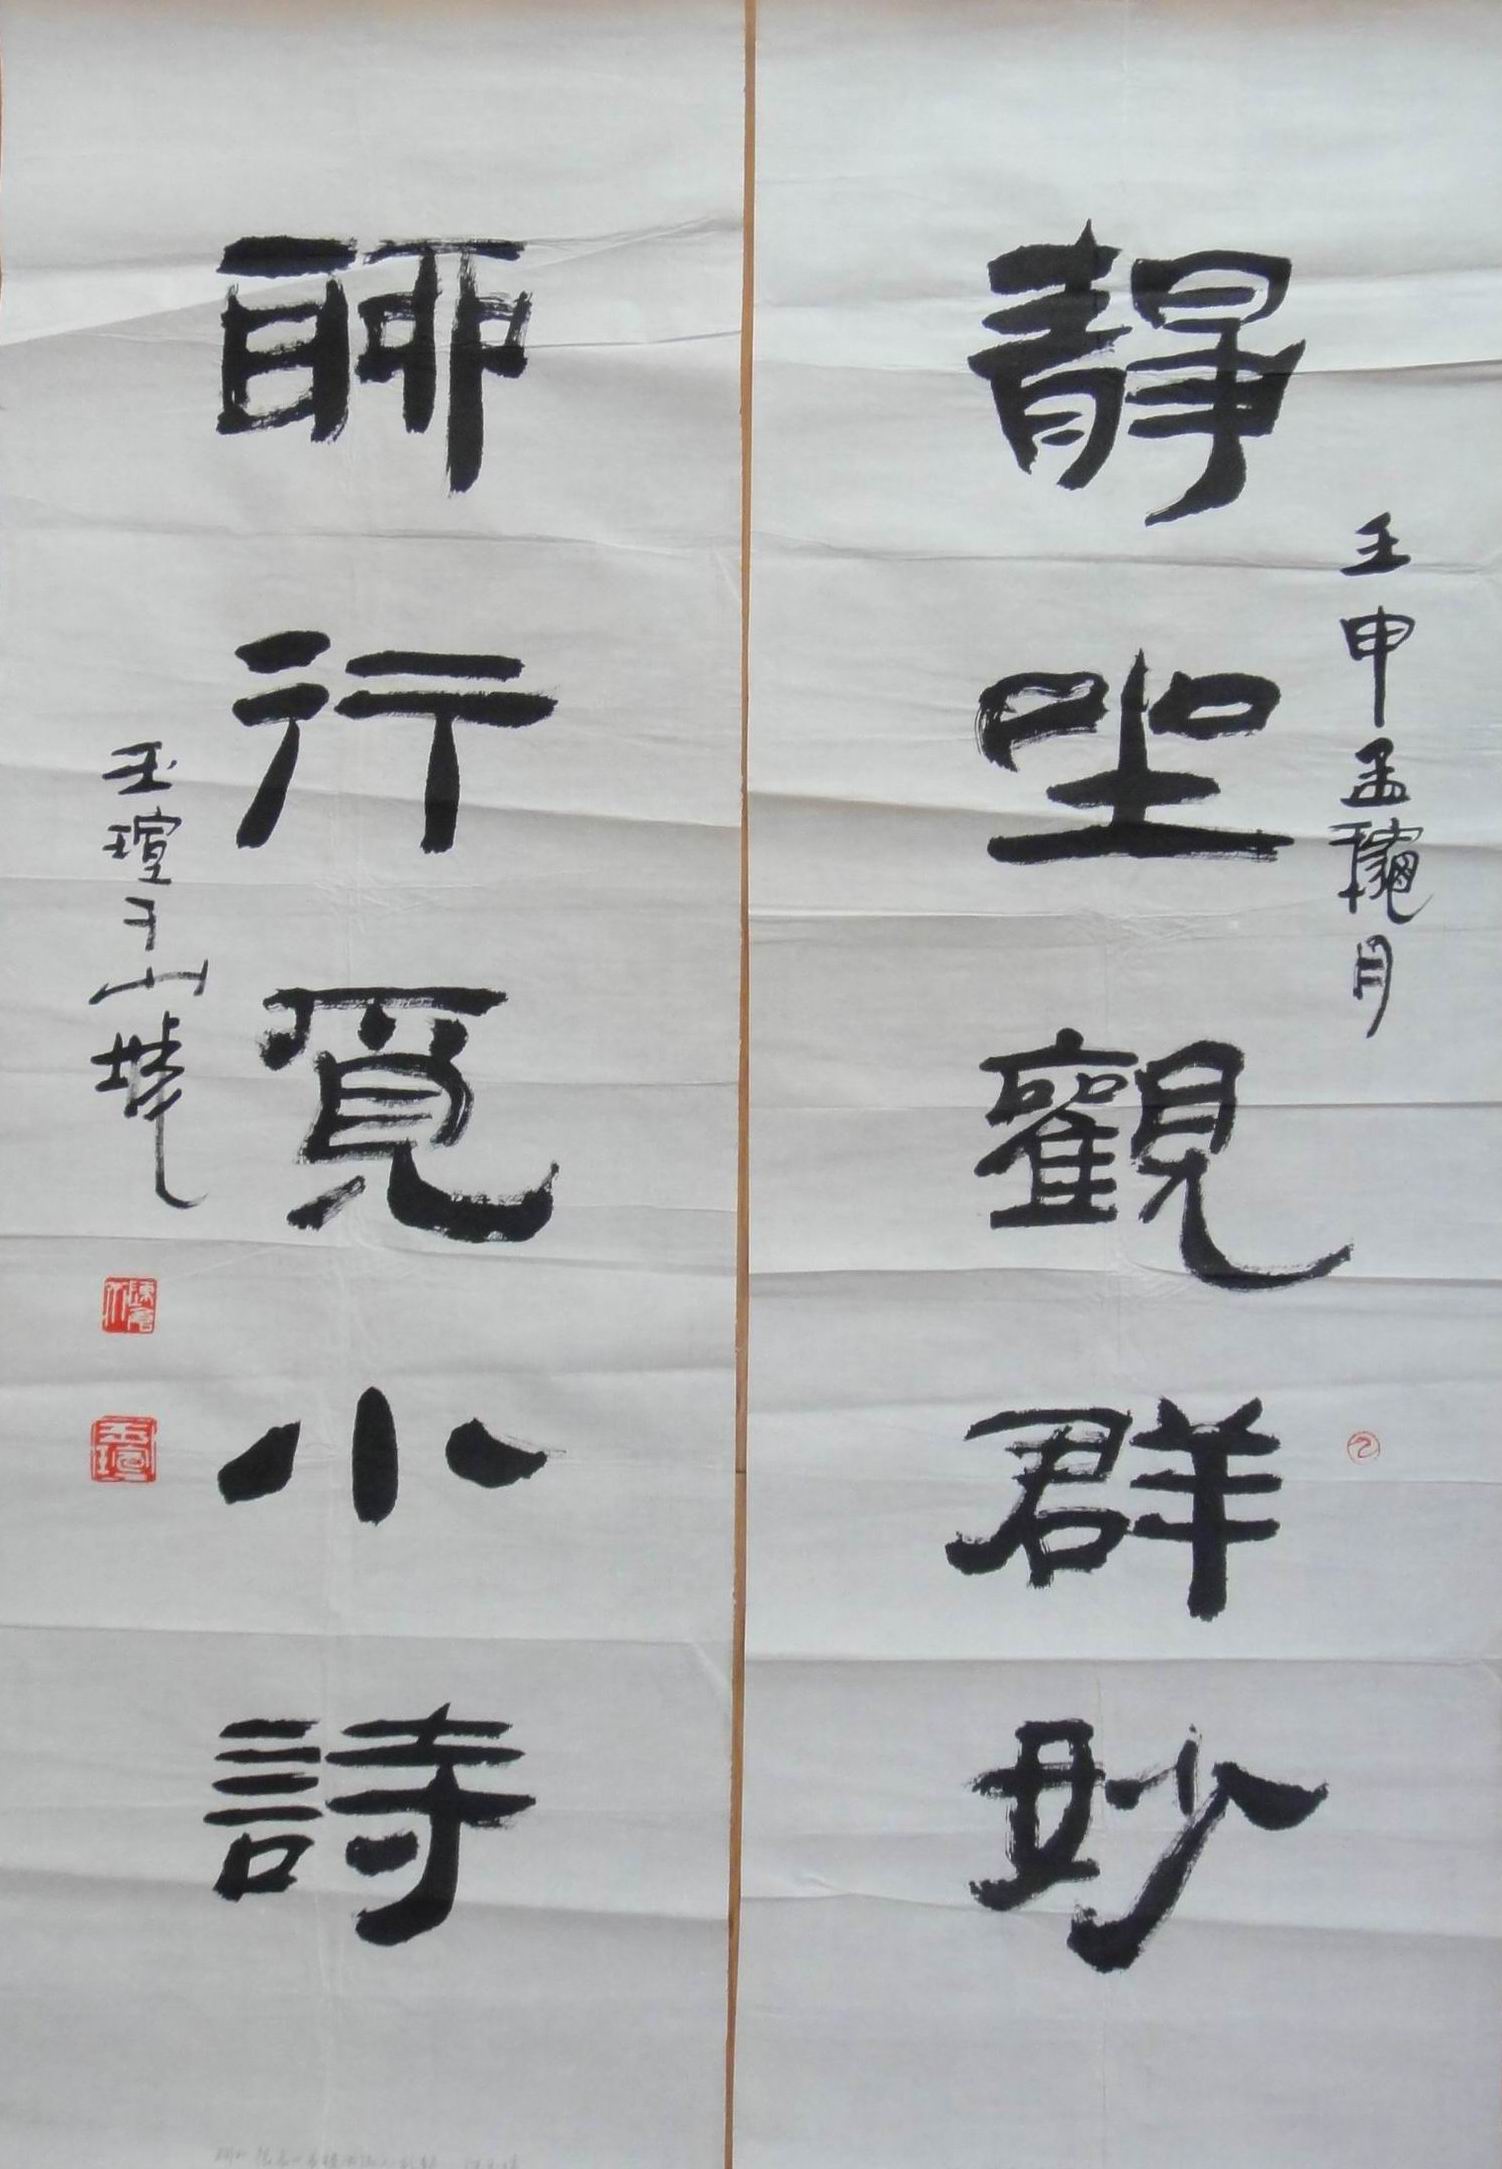 靜坐觀群妙
壬申孟龝月
聊行覓小詩
玉瑄于山城